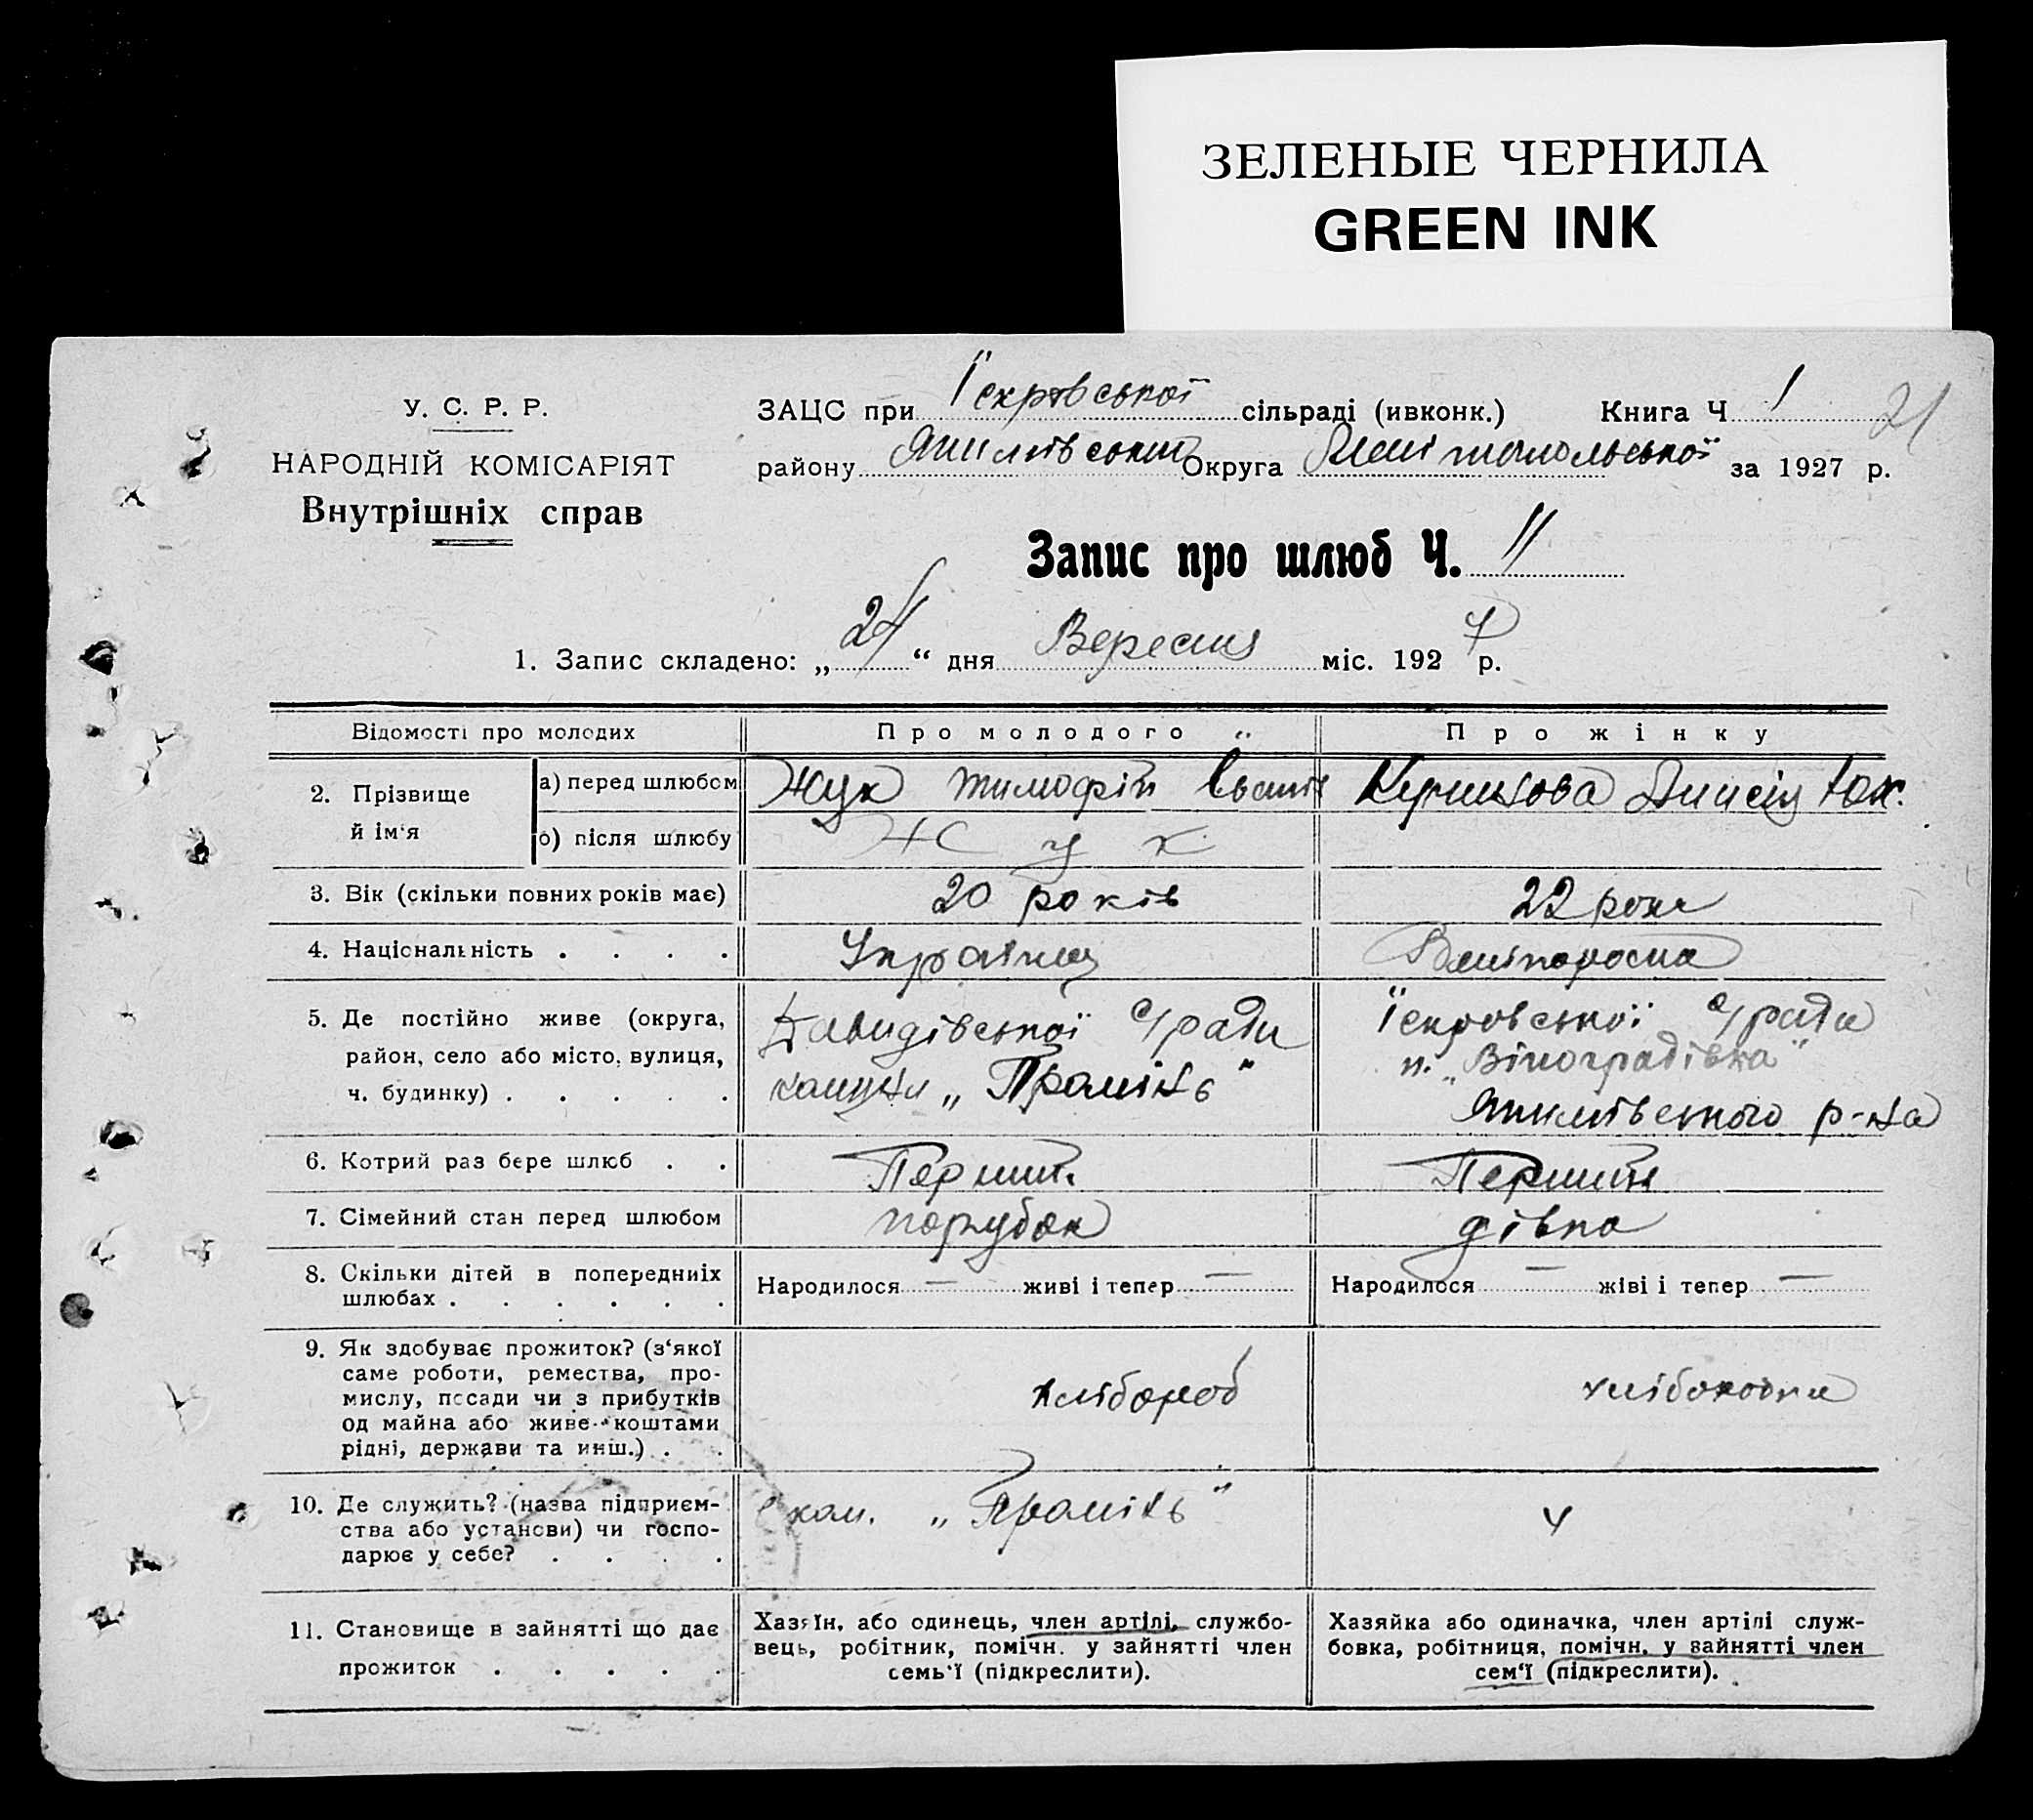 ЗЕЛЕНЫЕ ЧЕРНИЛА
GREEN INK
У. С. Р. Р.
НАРОДНІЙ КОМІСАРІЯТ
Внутрішніх справ
ЗАЦС при Їскровської сільраді (ивконк.) Книга Ч 1 21
району Якимівськ Округа Мелітопольської за 1927 р.
Запис про шлюб Ч. 11
1. Запис складено: „ 24 “ дня Вересня міс. 192 7 р.
Відомості про молодих Про молодого Про жінку
2. Прізвище й ім‘я
а) перед шлюбом Жук Тимофій Іванів
б) після шлюбу Жук
3. Вік (скільки повних років має) 20 років 22 роки
4. Національність . . . . Українец Великороска
5. Де постійно живе (округа, Давидівської с/ради Їскровської с/ради
район, село або місто, вулиця, комуни „Промінь“ п. „Віноградівка“
ч. будинку) . . . . . Якимівського р-на
6. Котрий раз бере шлюб . . Перший Перший
7. Сімейний стан перед шлюбом парубок дівка
8. Скільки дітей в попередниіх
шлюбах . . . . . .
Народилося — живі і тепер — Народилося — жіві і тепер —
9. Як здобуває прожиток? (з‘якої
саме роботи, ремества, про-
мислу, песади чи з прибутків хлібороб хліборобка
од майна або живе коштами
рідні, держави та инш.) . .
10. Де служить? (назва підприєм- ком. „Промінь“
ства або установи) чи госпо-
дарює у себе? . . . .
11. Становище в зайнятті що дає
прожиток . . . . .
Хазяїн, або одинець, член артілі, службо-
вець, робітник, помічн. у зайнятті член
семь‘ї (підкреслити).
Хазяйка або одиначка, член артілі служ-
бовка, робітниця, помічн. у зайнятті член
сем‘ї (підкреслити).